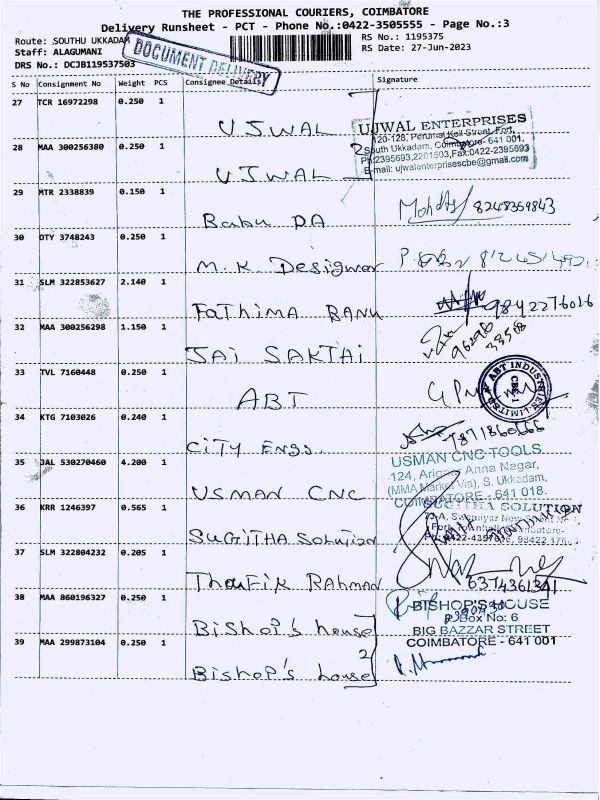 THE PROFESSIONAL COURIERS, COIMBATORE
Delivery Runsheet - PCT - Phone No.:0422-3505555 - Page No.:3
Route: SOUTHU UKKADAM
Staff: ALAGUMANI
DRS No.: DCJB119537503
DOCUMENT DELIVERY
RS No.: 1195375
RS Date: 27-Jun-2023
S No Consignment No Weight PCS Consignee Details Signature
27 TCR 16972298 0.250 1
UJWAL
28 MAA 300256380 0.250 1
UJWAL
2
UJWAL ENTERPRISES
120-128, Perumal Koil Street, Fort,
South Ukkadam, Coimbatore- 641 001.
Ph:2395693,2201503,Fax:0422-2395693
E-mail: ujwalenterprisescbe@gmail.com
29 MTR 2338839 0.150 1
Babu DA
8248359843
30 DTY 3748243 0.250 1
M.K Designwar
31 SLM 322853627 2.140 1
Fathima BANU
9842276016
32 MAA 300256298 1.150 1
JAI SAKTAI
96296
38508
33 TVL 7160448 0.250 1
ABT
ABT INDUSTRIES LIMITED
CBE-1
34 KTG 7103026 0.240 1
CITY ENGS.
7871860666
35 JAL 530270460 4.200 1
USMAN CNC
USMAN CNC TOOLS
124, Arignar Anna Nagar,
(MMA Market Via), S. Ukkadam,
COIMBATORE - 641 018.
36 KRR 1246397 0.565 1
SUGITHA SOLUTION
SUGITHA SOLUTION
37 SLM 322804232 0.205 1
Thoufik RAHMAN
6374361341
38 MAA 860196327 0.250 1
Bishop's house
39 MAA 299873104 0.250 1
Bishop's house
2
BISHOP'S HOUSE
Box No: 6
BIG BAZZAR STREET
COIMBATORE - 641 001